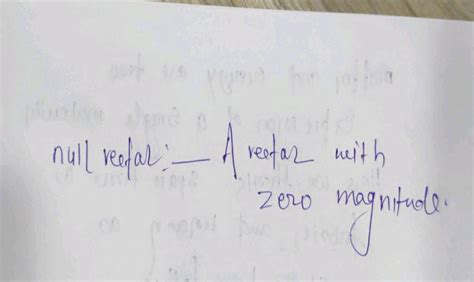 null vector:— A vector with
zero magnitude.